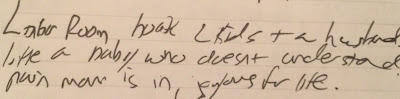 Labor Room, book 2 kids + a husband
like a baby who doesnt understand.
pain mom is in, for life.